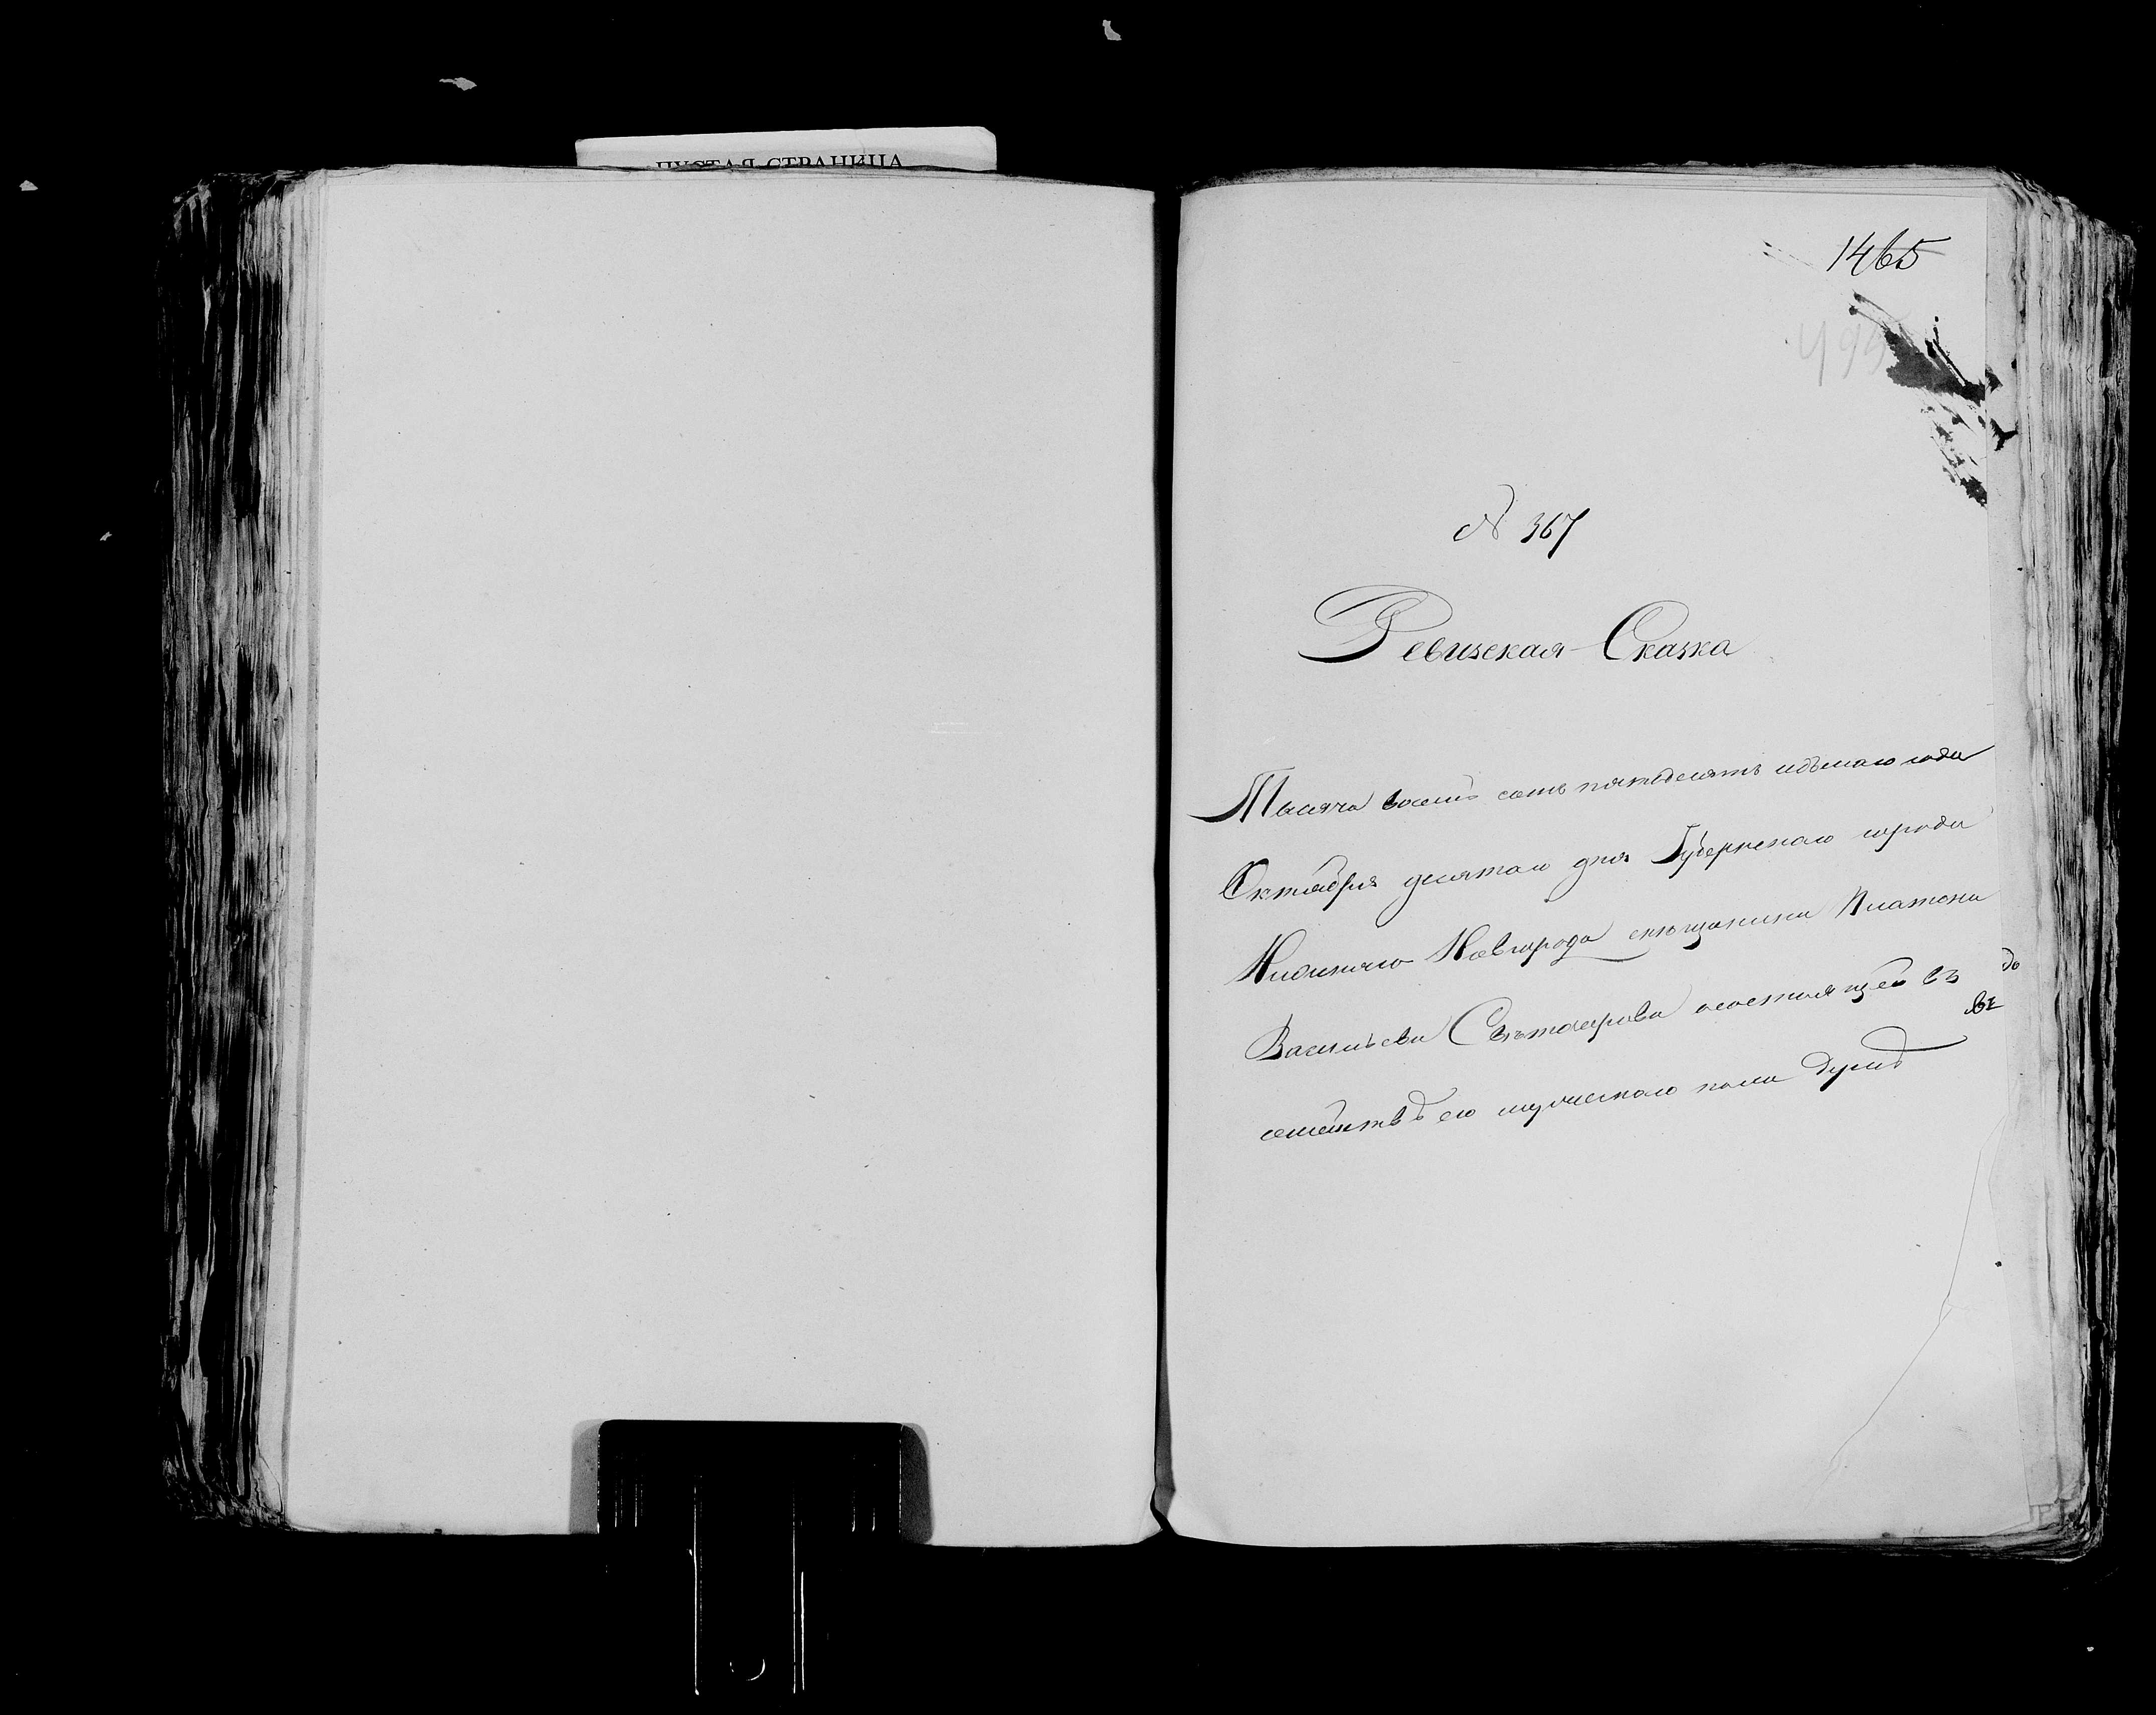 ПУСТАЯ СТРАНИЦА
1465
495
№ 367
Ревизская Сказка
Тысяча восемь сотъ пятьдесятъ седьмаго года
Октября десятаго дня Губернскаго города
Нижняго Новгорода мѣщанина Платона
Васильева о состоящей въ
семействѣ его мужескаго пола душѣ